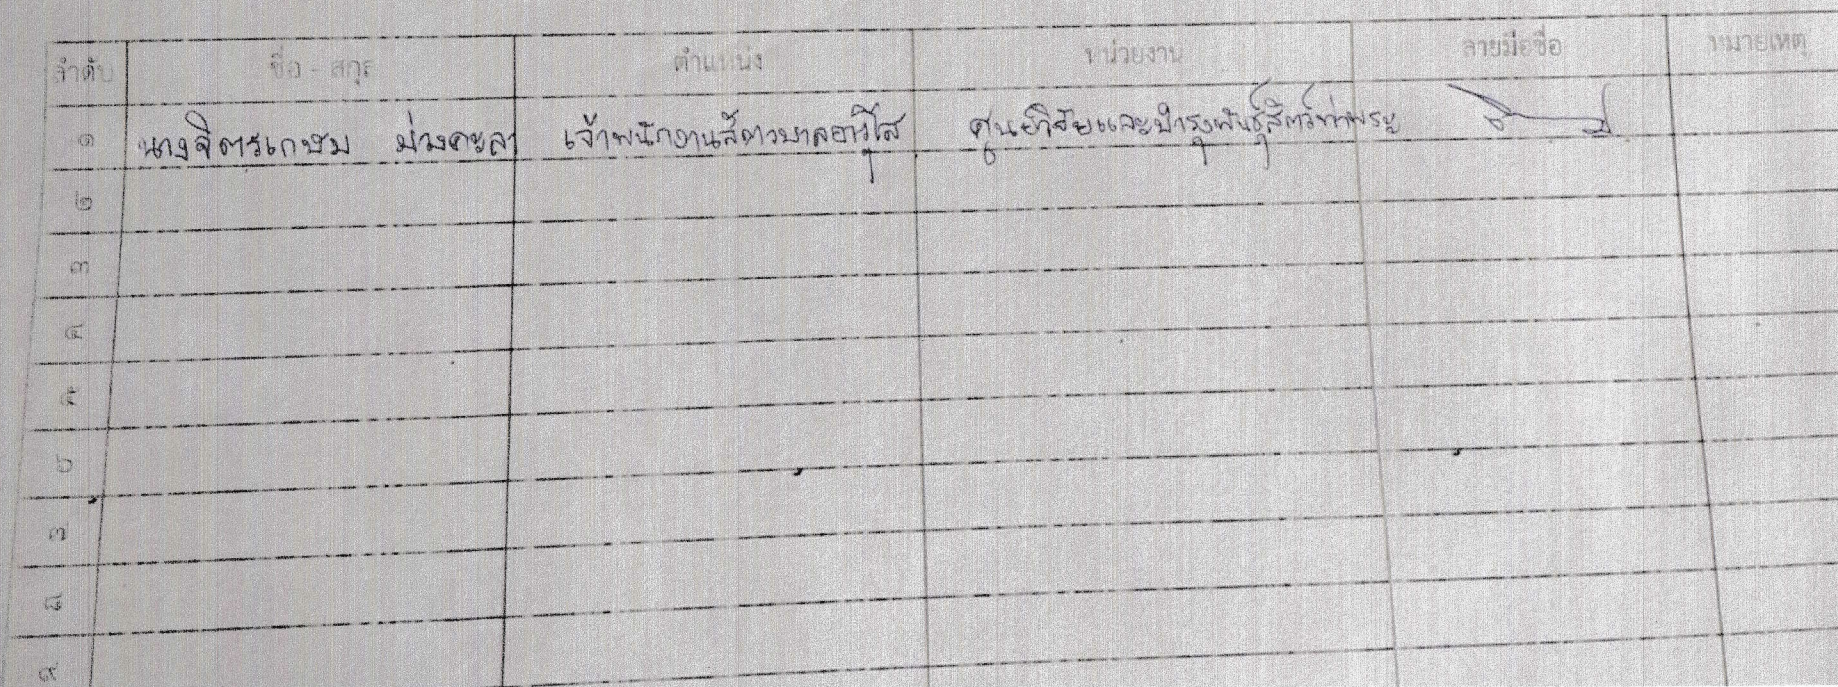 ลำดับ ชื่อ - สกุล ตำแหน่ง หน่วยงาน ลายมือชื่อ หมายเหตุ
๑ นางจิตรเกษม ม่วงคะลา เจ้าพนักงานสัตวบาลอาวุโส ศูนย์วิจัยและบำรุงพันธุ์สัตว์ท่าพระ
๒
๓
๔
๕
๖
๗
๘
๙